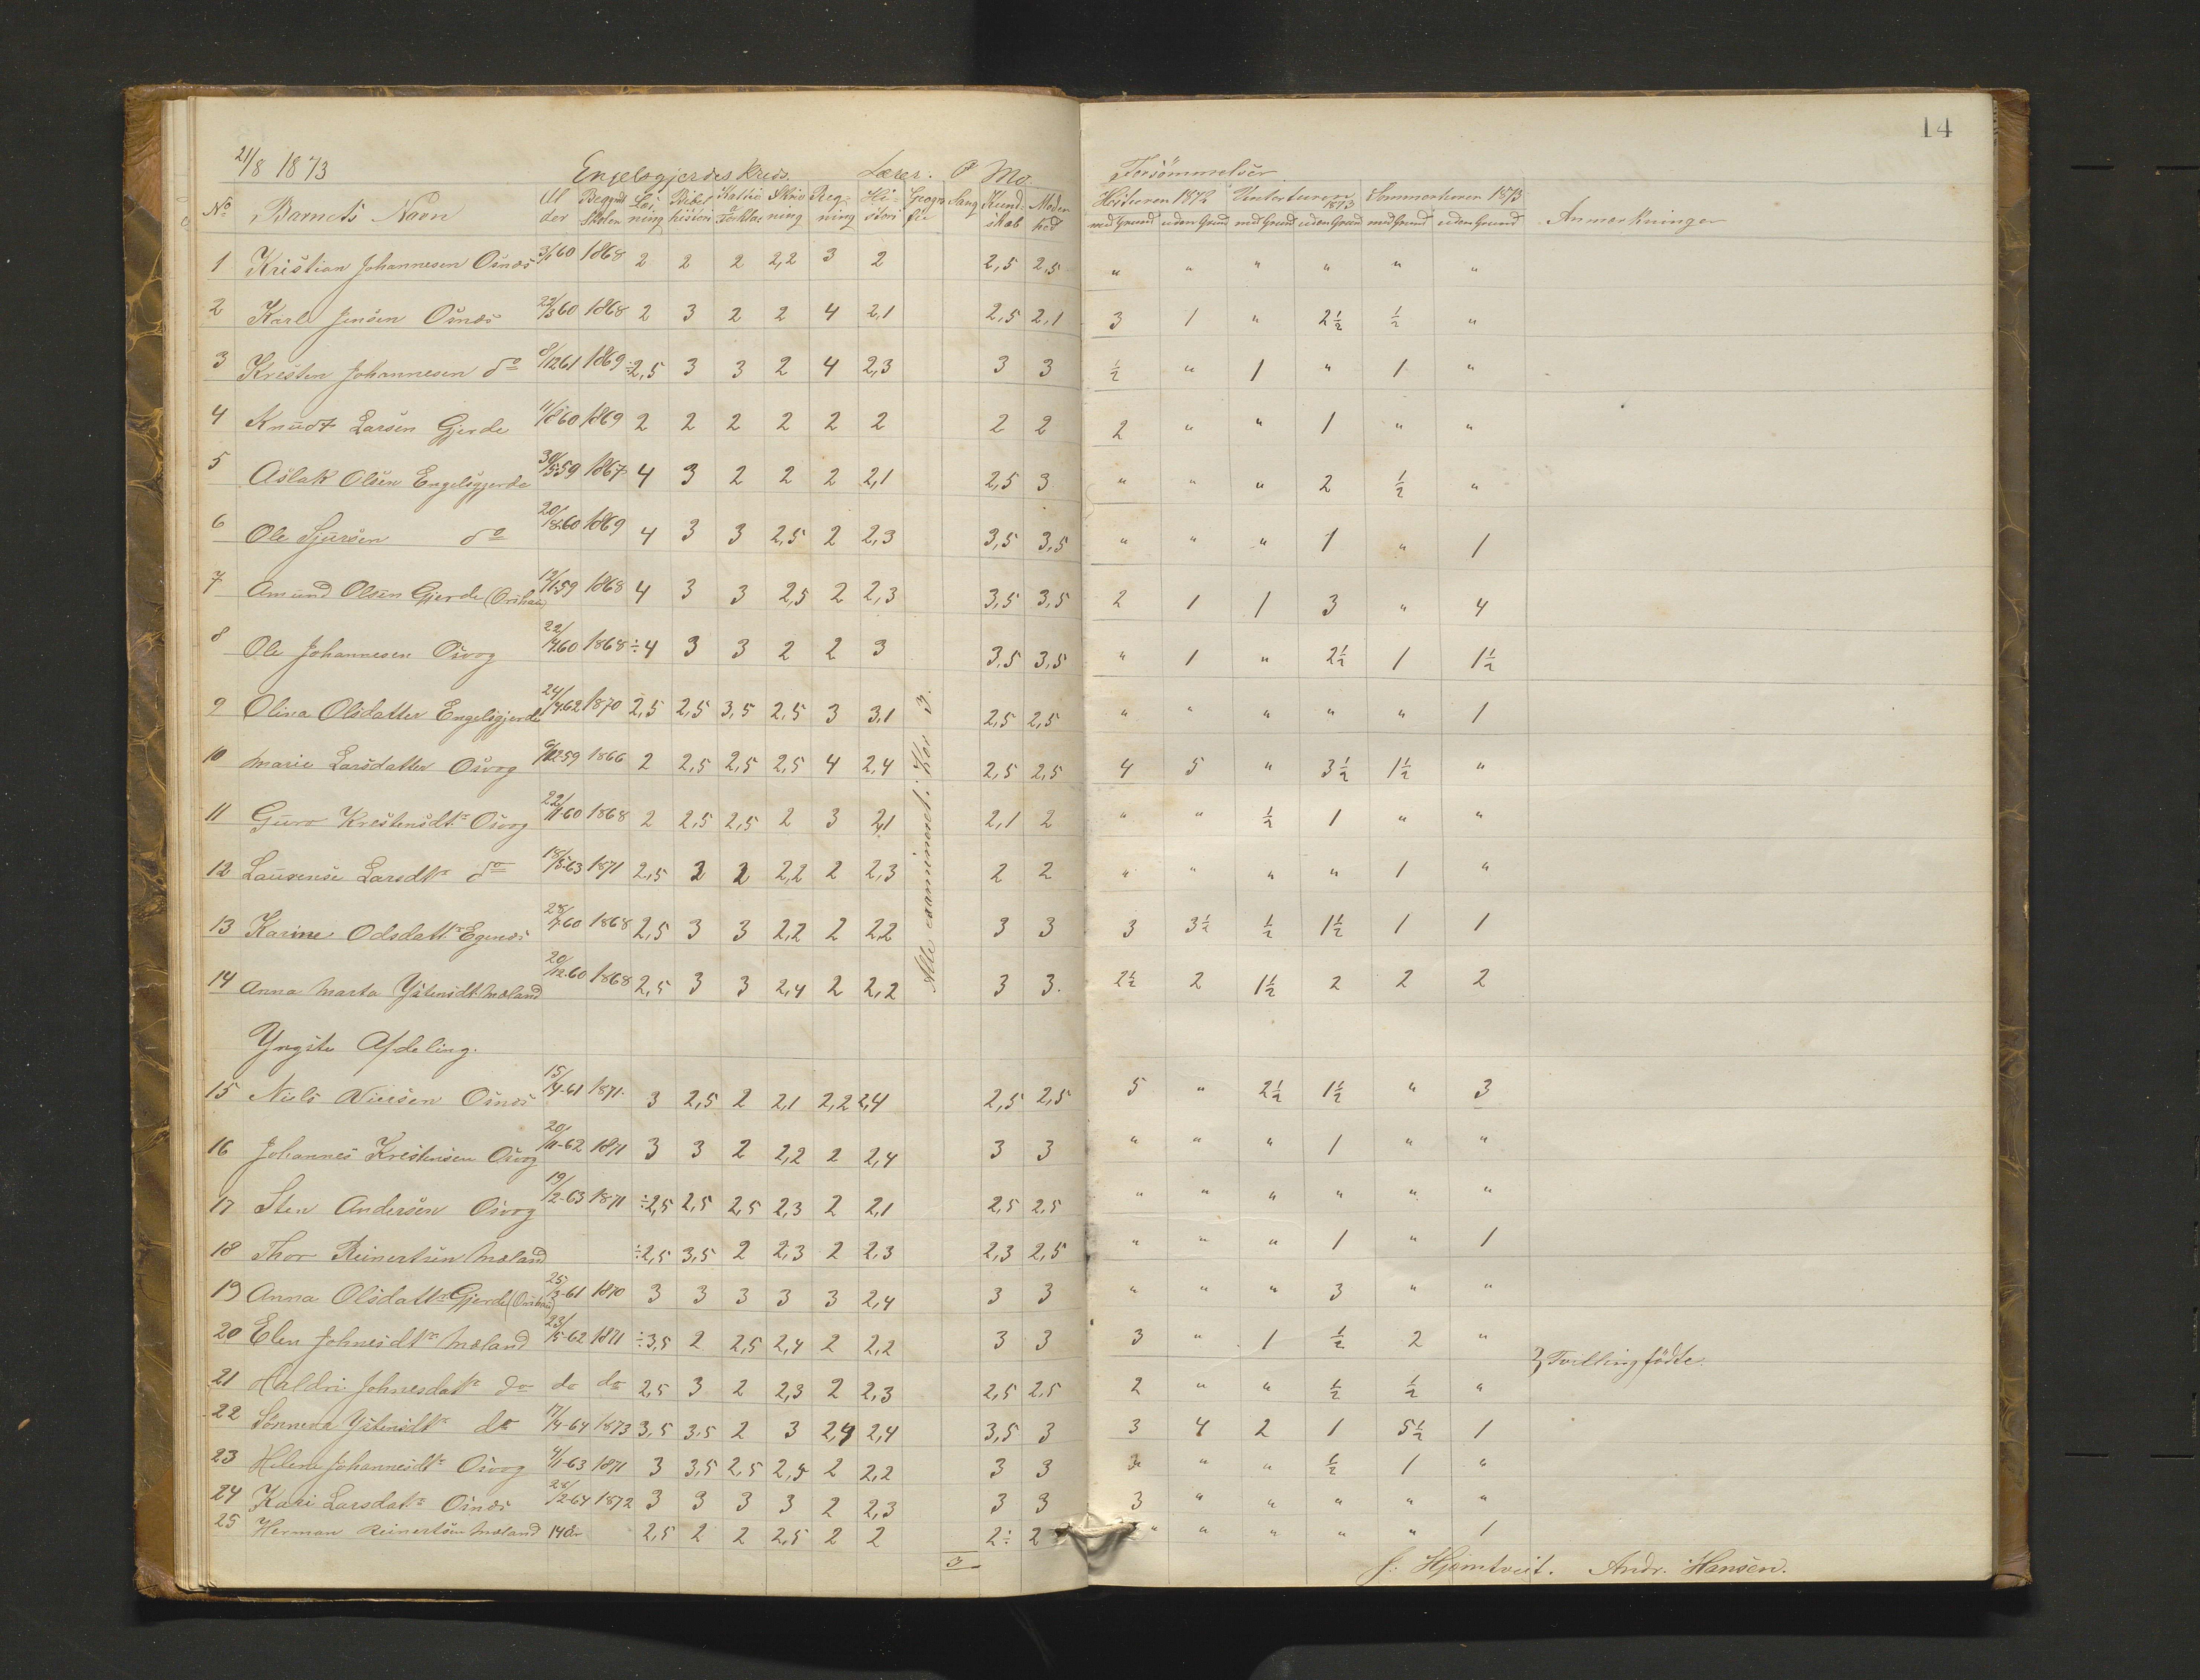 14
21/8 1873 Engelsgjerdes Kreds. Lærer. P Mo. Forsömmelser
No Barnets Navn Al der Begyndt Skolen Læs ning Bibel histori Katki & Forklar Skriv ning Reg- ning Hi- stori Geogra fie Sang Kund- skab Moden hed Hösturen 1872 Vinterturen 1873 Sommerturen 1873 Anmærkninger
med Grund uden Grund med Grund uden Grund med Grund uden Grund
1 Kristian Johannesen Osnæs 3/1 60 1868 2 2 2 2,2 3 2 2,5 2,5 " " " " " "
2 Karl Jensen Osnæs 22/3 60 1868 2 3 2 2 4 2,1 2,5 2,1 3 1 " 2½ ½ "
3 Kresten Johannesen do 8/12 61 1869 ÷2,5 3 3 2 4 2,3 3 3 ½ " 1 " 1 "
4 Knudt Larsen Gjerde 11/8 60 1869 2 2 2 2 2 2 2 2 2 " " 1 " "
5 Aslak Olsen Engelsgjerde 30/5 59 1867 4 3 2 2 2 2,1 2,5 3 " " " 2 ½ "
6 Ole Sjursen do 20/8 60 1869 4 3 3 2,5 2 2,3 3,5 3,5 " " " 1 " 1
7 Amund Olsen Gjerde 12/1 59 1868 4 3 3 2,5 2 2,3 3,5 3,5 2 1 1 3 " 4
8 Ole Johannesen Osvog 22/4 60 1868 ÷4 3 3 2 2 3 3,5 3,5 " 1 " 2½ 1 1½
9 Olina Olsdatter Engelsgjerde 24/4 62 1870 2,5 2,5 3,5 2,5 3 3,1 2,5 2,5 " " " " " 1
10 Marie Larsdatter Osvog 6/12 59 1866 2 2,5 2,5 2,5 4 2,4 2,5 2,5 4 5 " 3½ 1½ "
11 Guro Krestensdtr Osvog 22/11 60 1868 2 2,5 2,5 2 3 2,1 2,1 2 " " ½ 1 " "
12 Laurense Larsdtr do 18/5 63 1871 2,5 2 2 2,2 2 2,3 2 2 " " " " 1 "
13 Karine Odsdattr Egenæs 28/7 60 1868 2,5 3 3 2,2 2 2,2 3 3 3 3½ ½ 1½ 1 1
14 Anna Marta Ystensdt Mæland 20/12 60 1868 2,5 3 3 2,4 2 2,2 3 3. 2½ 2 1½ 2 2 2
Alle examineret: Kar 3.
Yngste Afdeling.
15 Niels Nielsen Osnæs 15/4-61 1871. 3 2,5 2 2,1 2,2 2,4 2,5 2,5 5 " 2½ 1½ " 3
16 Johannes Krestensen Osvog 20/11-62 1871 3 3 2 2,2 2 2,4 3 3 " " " 1 " "
17 Sten Andersen Osvog 19/2-63 1871 ÷2,5 2,5 2,5 2,3 2 2,1 2,5 2,5 " " " " " "
18 Thor Reinertsen Mæland ÷2,5 3,5 2 2,3 2 2,3 2,3 2,5 " " " 1 " 1
19 Anna Olsdattr Gjerde 25/3-61 1870 3 3 3 3 3 2,4 3 3 " " " 3 " "
20 Elen Johnesdtr Mæland 23/5-62 1871 ÷3,5 2 2,5 2,4 2 2,2 3 3 3 " 1 ½ 2 "
} Tvillingfödte.
21 Haldri Johnesdatr do do do 2,5 3 2 2,3 2 2,3 2,5 2,5 2 " " ½ ½ "
22 Sönneva Ystensdtr do 17/4-64 1873 3,5 3,5 2 3 2,4 2,4 3,5 3 3 4 2 1 5½ 1
23 Helene Johannesdtr Osvog 4/1-63 1871 3 3,5 2,5 2,5 2 2,2 3 3 3 " " ½ 1 "
24 Kari Larsdatr Osnæs 28/2-64 1872 3 3 3 3 2 2,3 3 3 3 " " " " "
25 Herman Reinertsen Mæland 14 Aar 2,5 2 2 2,5 2 2 2÷ 2 " " " " " 1
3
J. Hjemtveit. Andr. Hansen.